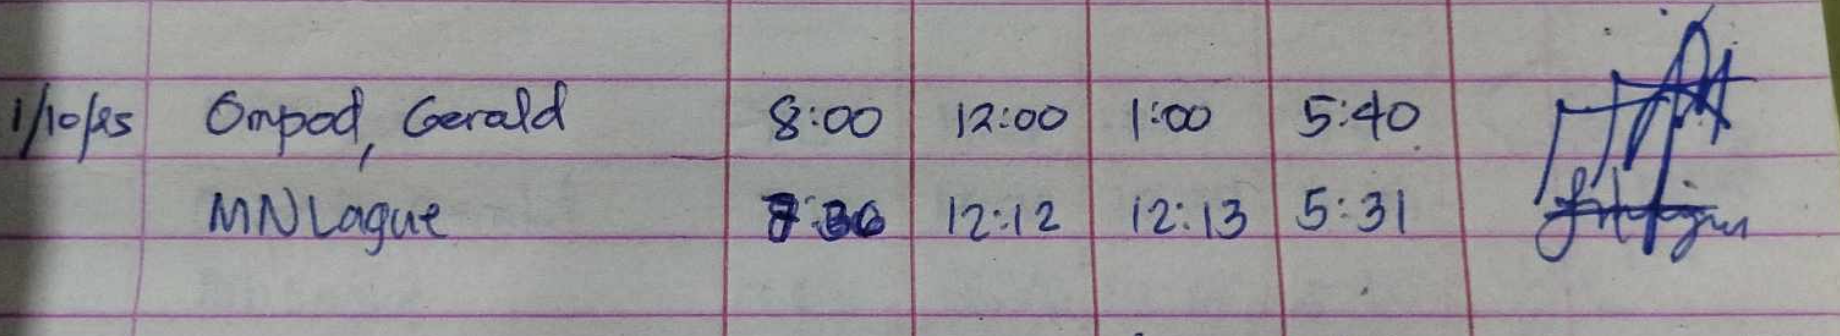 1/10/25 Ompod, Gerald 8:00 12:00 1:00 5:40
MNLague 12:12 12:13 5:31